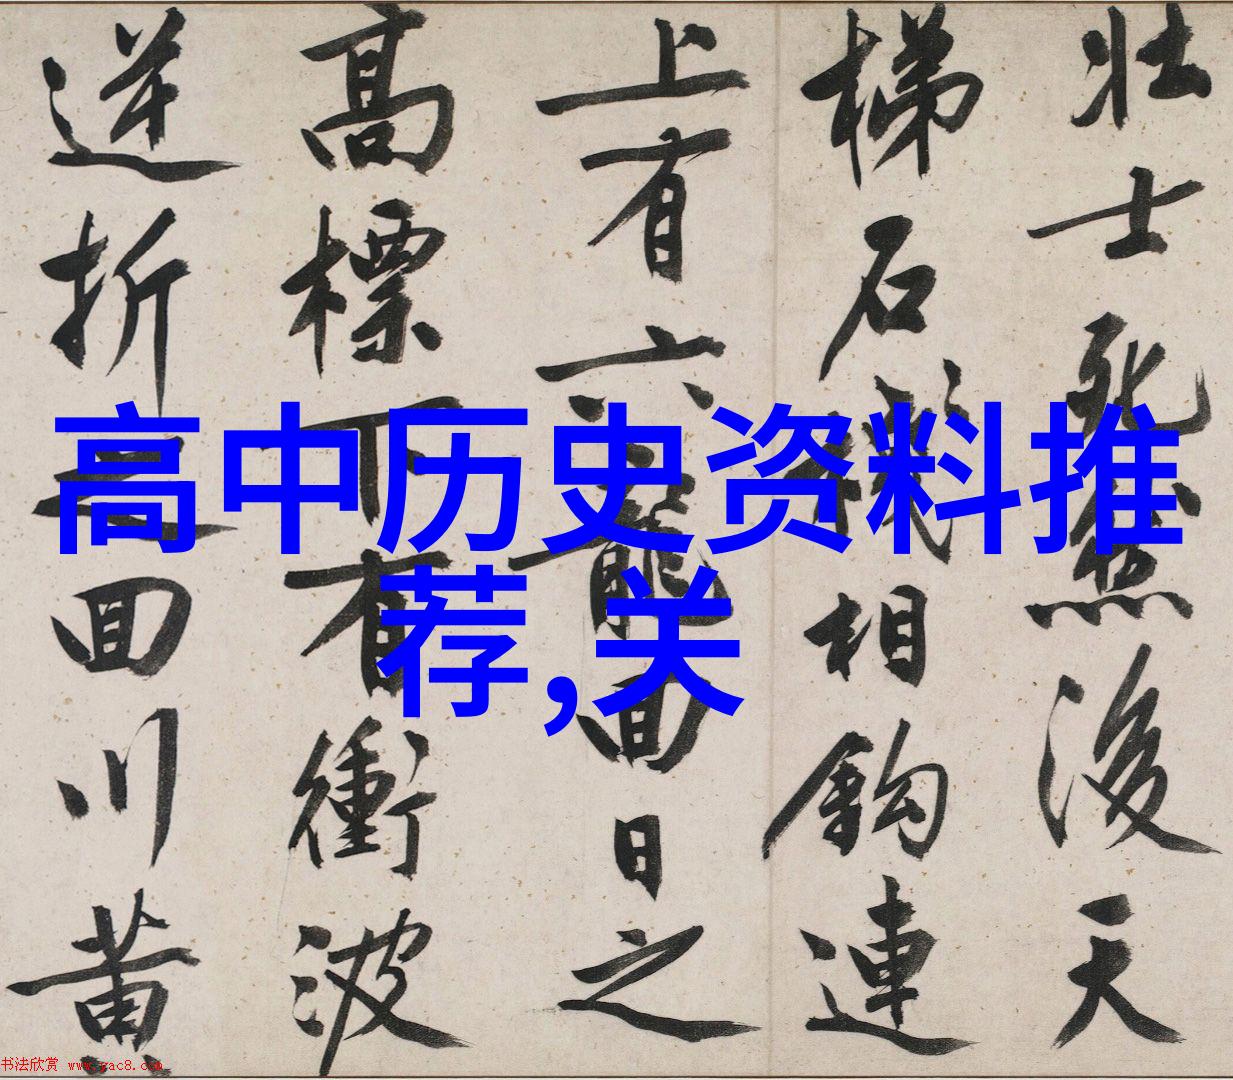 壮士死然後天
梯石棧相鈎連
上有六龍回日之
高標下有衝波
逆折之回川黄
高中历史资料推
荐,关
书法欣赏 www.yac8.com